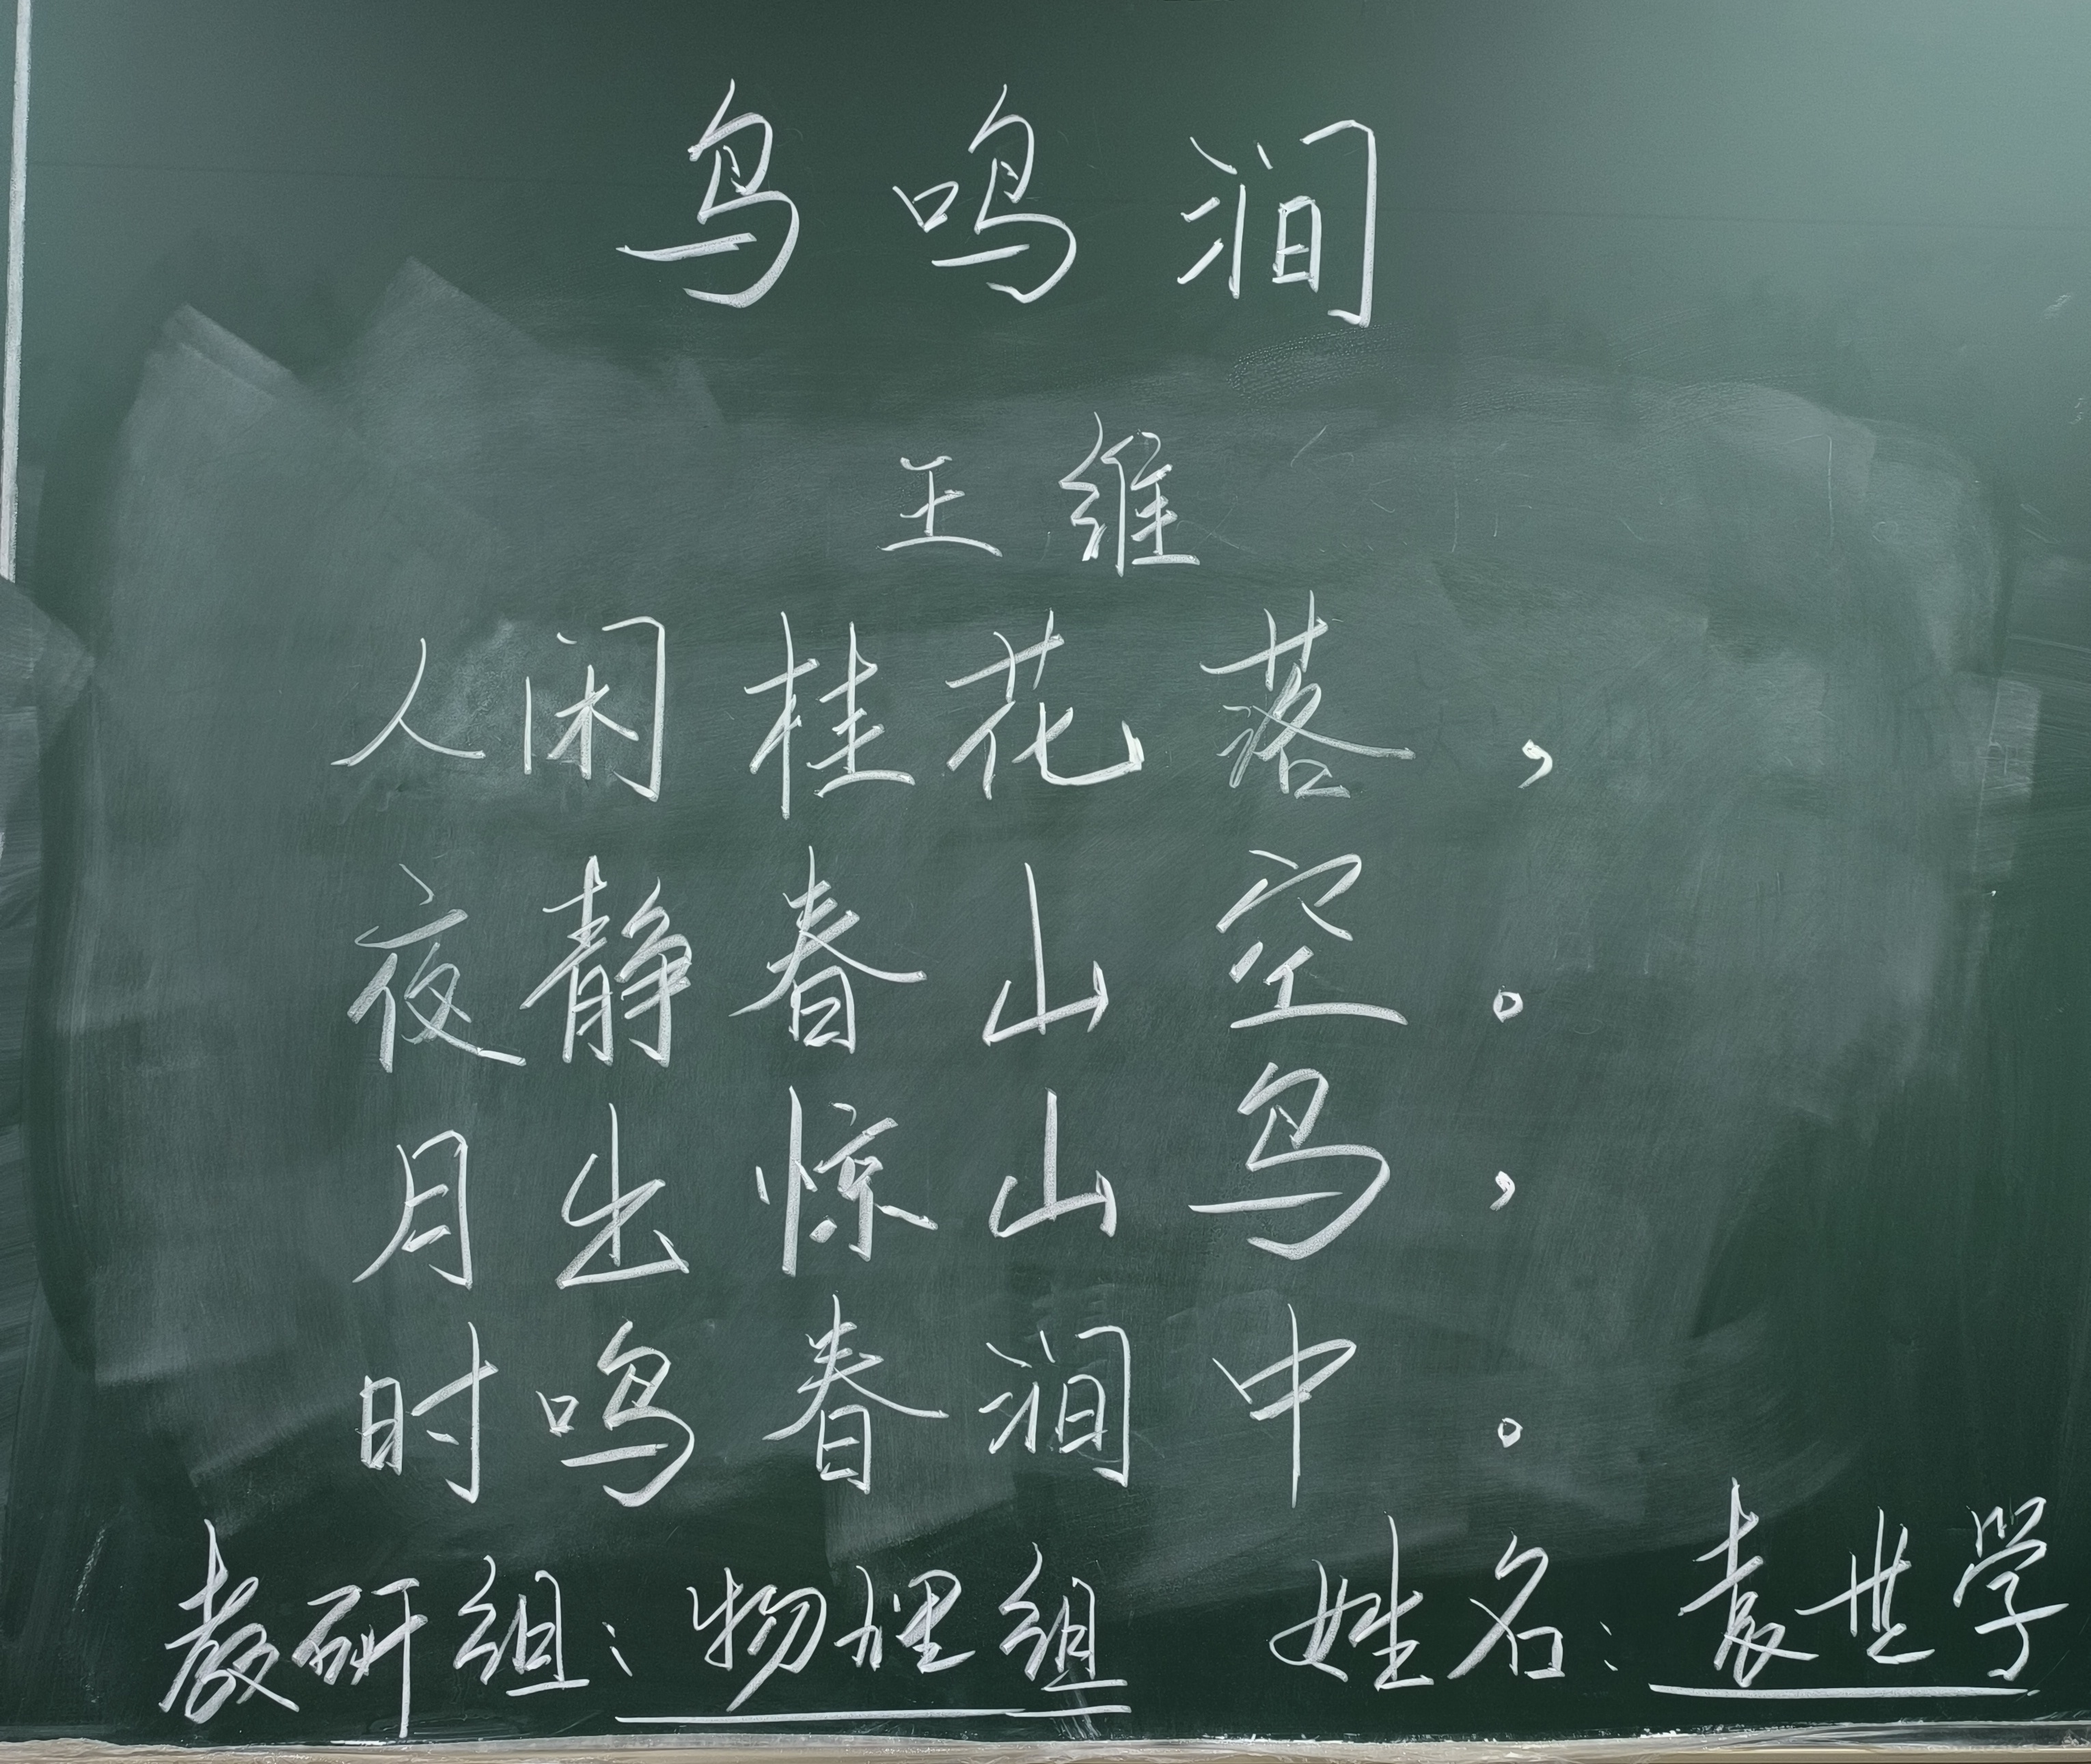 鸟鸣涧
王维
人闲桂花落，
夜静春山空。
月出惊山鸟，
时鸣春涧中。
教研组：物理组 姓名：袁世学